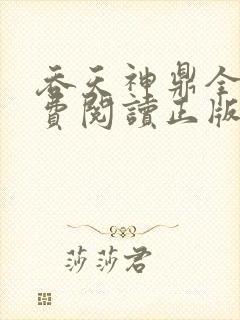 吞天神鼎全
費閱讀正版
莎莎君